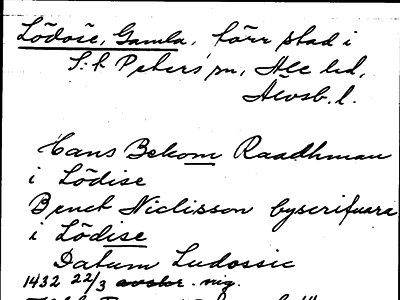 Lödöse, Gamla, förr stad i
S:t Peters sn, Ale hd,
Älvsb. l.
Hans Bekom Raadhman
i Lödise
Benct Niclisson byscrifuare
i Lödisie
Datum Ludossie
1432 22/3 avskr. nig.